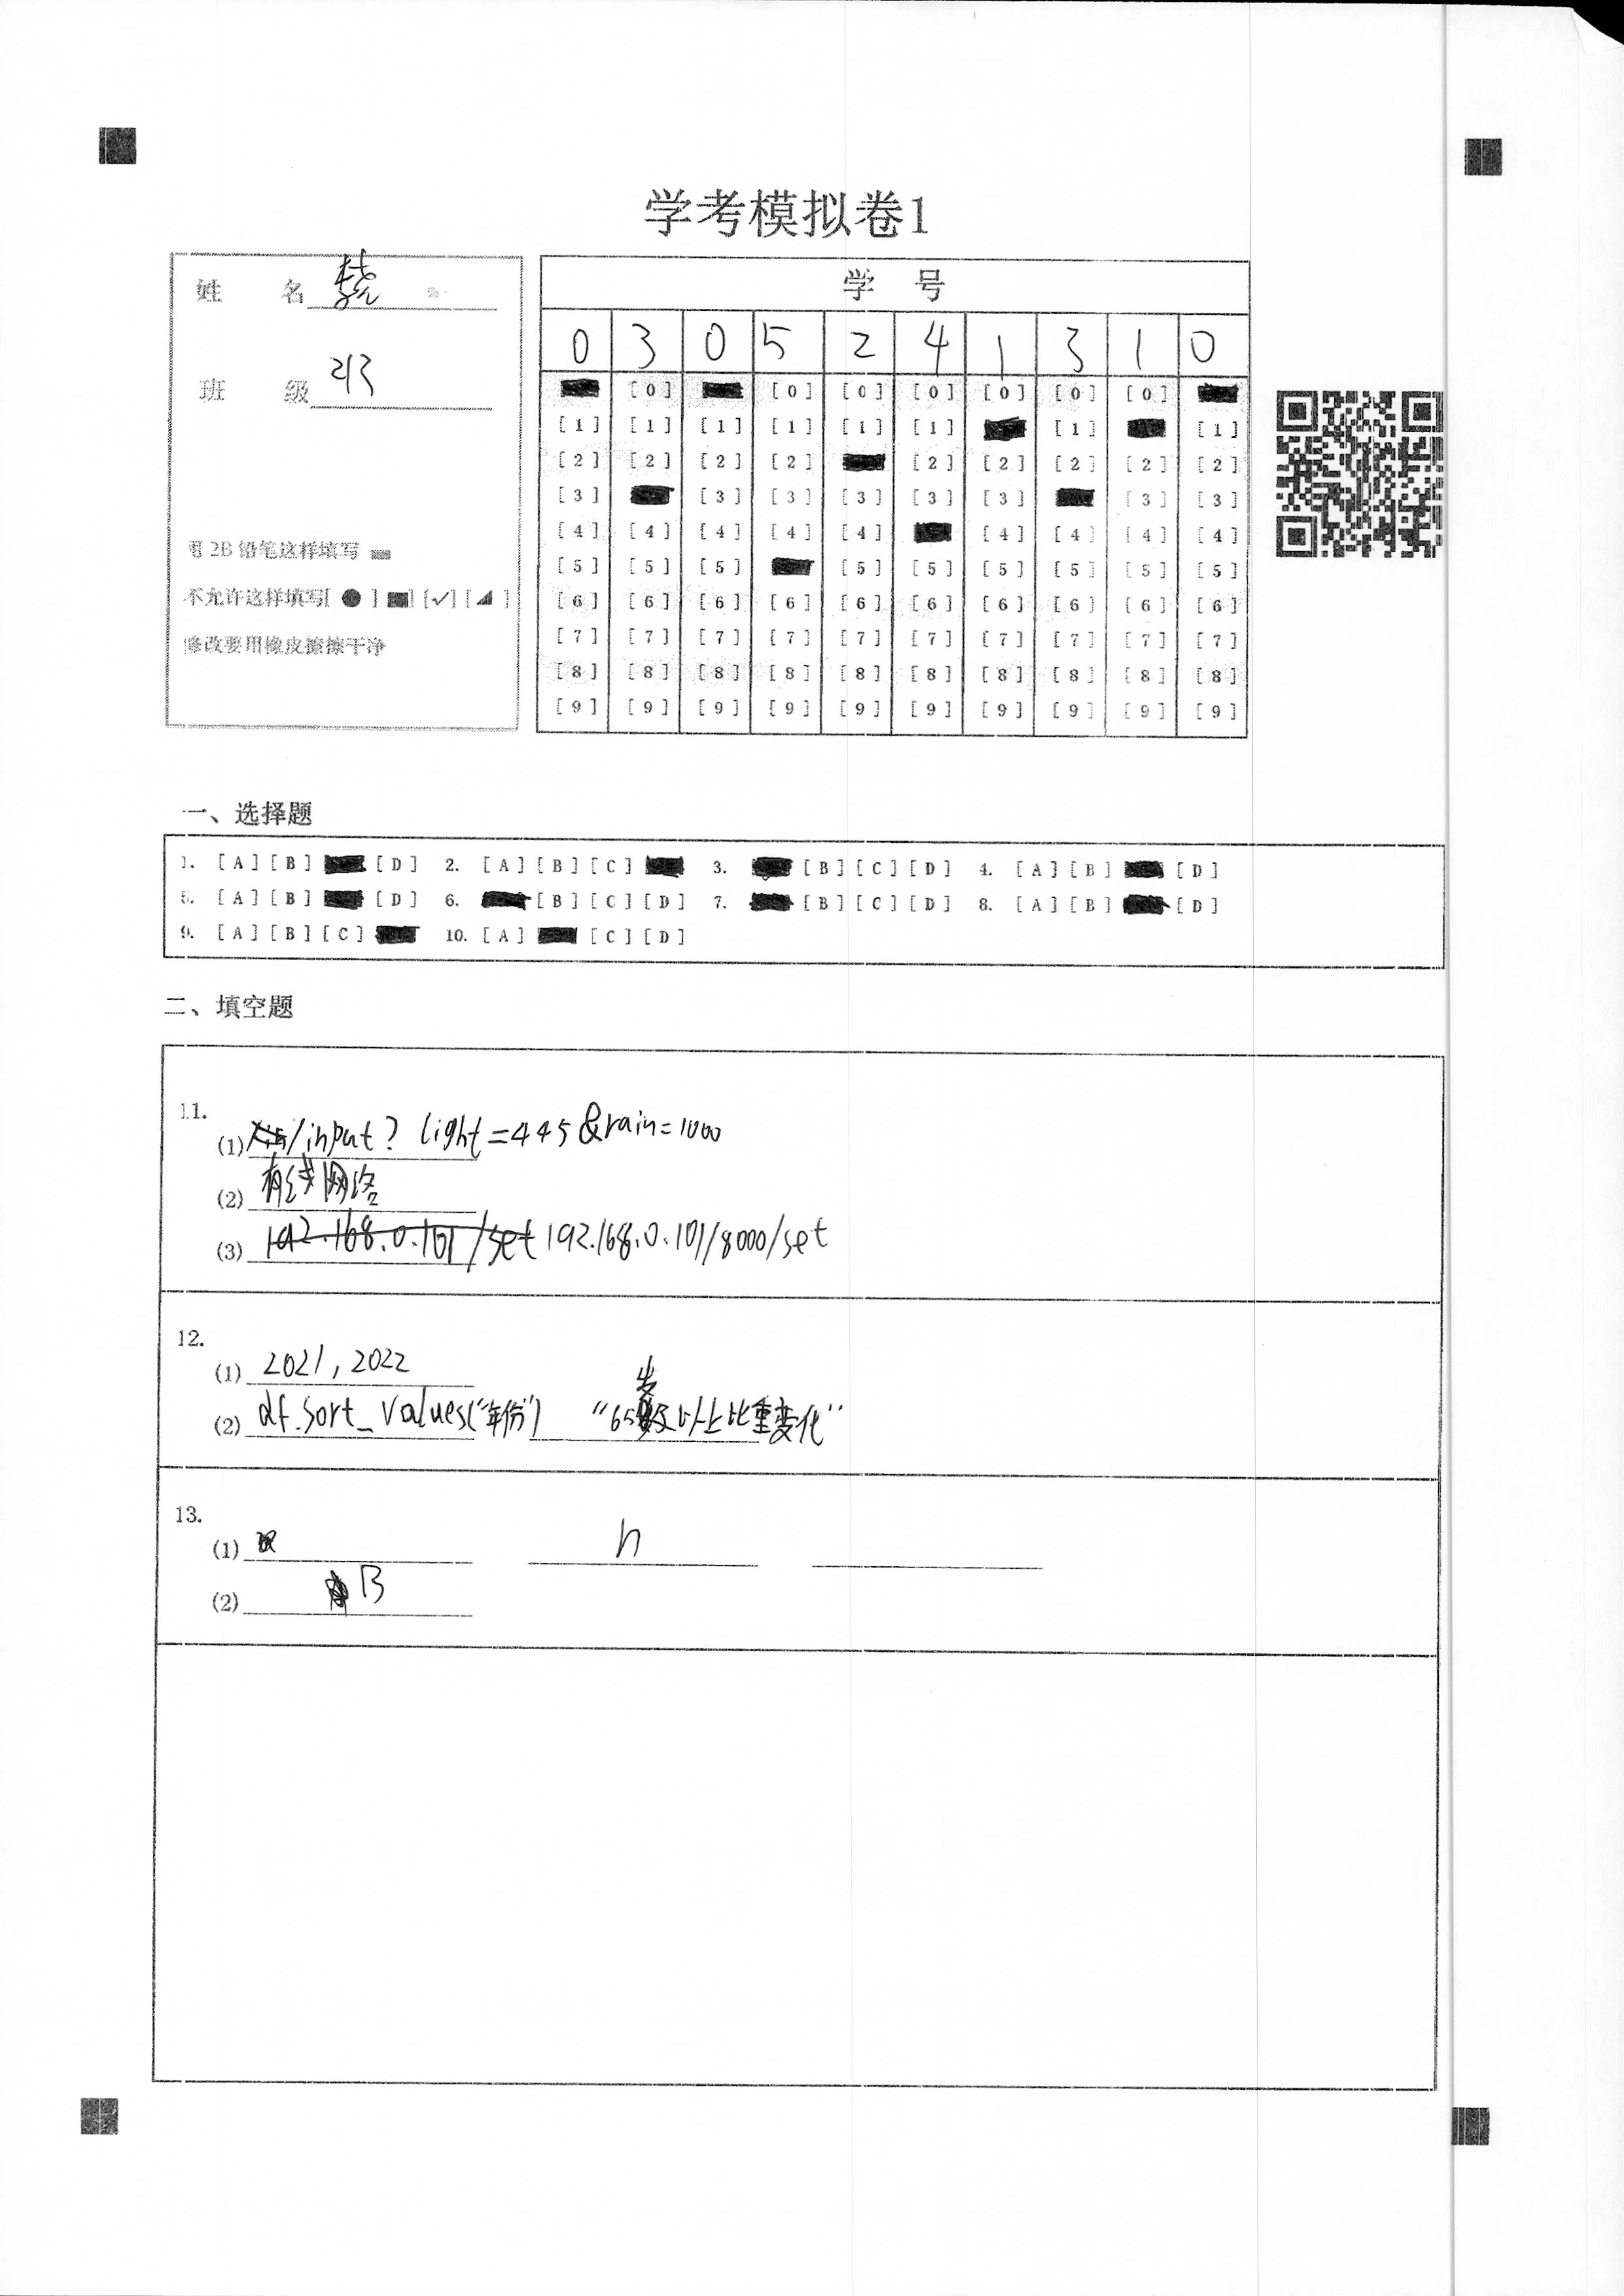 学考模拟卷1
姓 名
班 级 213
用 2B 铅笔这样填写
不允许这样填写[ ● ] [✓] [ ]
修改要用橡皮擦擦干净
学 号
0 3 0 5 2 4 1 3 1 0
[0] [0] [0] [0] [0] [0] [0]
[1] [1] [1] [1] [1] [1] [1] [1]
[2] [2] [2] [2] [2] [2] [2] [2] [2]
[3] [3] [3] [3] [3] [3] [3] [3]
[4] [4] [4] [4] [4] [4] [4] [4] [4]
[5] [5] [5] [5] [5] [5] [5] [5] [5]
[6] [6] [6] [6] [6] [6] [6] [6] [6] [6]
[7] [7] [7] [7] [7] [7] [7] [7] [7] [7]
[8] [8] [8] [8] [8] [8] [8] [8] [8] [8]
[9] [9] [9] [9] [9] [9] [9] [9] [9] [9]
一、选择题
1. [A] [B] [D] 2. [A] [B] [C] 3. [B] [C] [D] 4. [A] [B] [D]
5. [A] [B] [D] 6. [B] [C] [D] 7. [B] [C] [D] 8. [A] [B] [D]
9. [A] [B] [C] 10. [A] [C] [D]
二、填空题
11.
(1) /input? light=445&rain=1000
(2) 有线网络
(3) 192.168.0.101/set 192.168.0.101/8000/set
12.
(1) 2021, 2022
(2) df.sort_values("年份") "65岁及以上比重变化"
13.
(1) n
(2) B